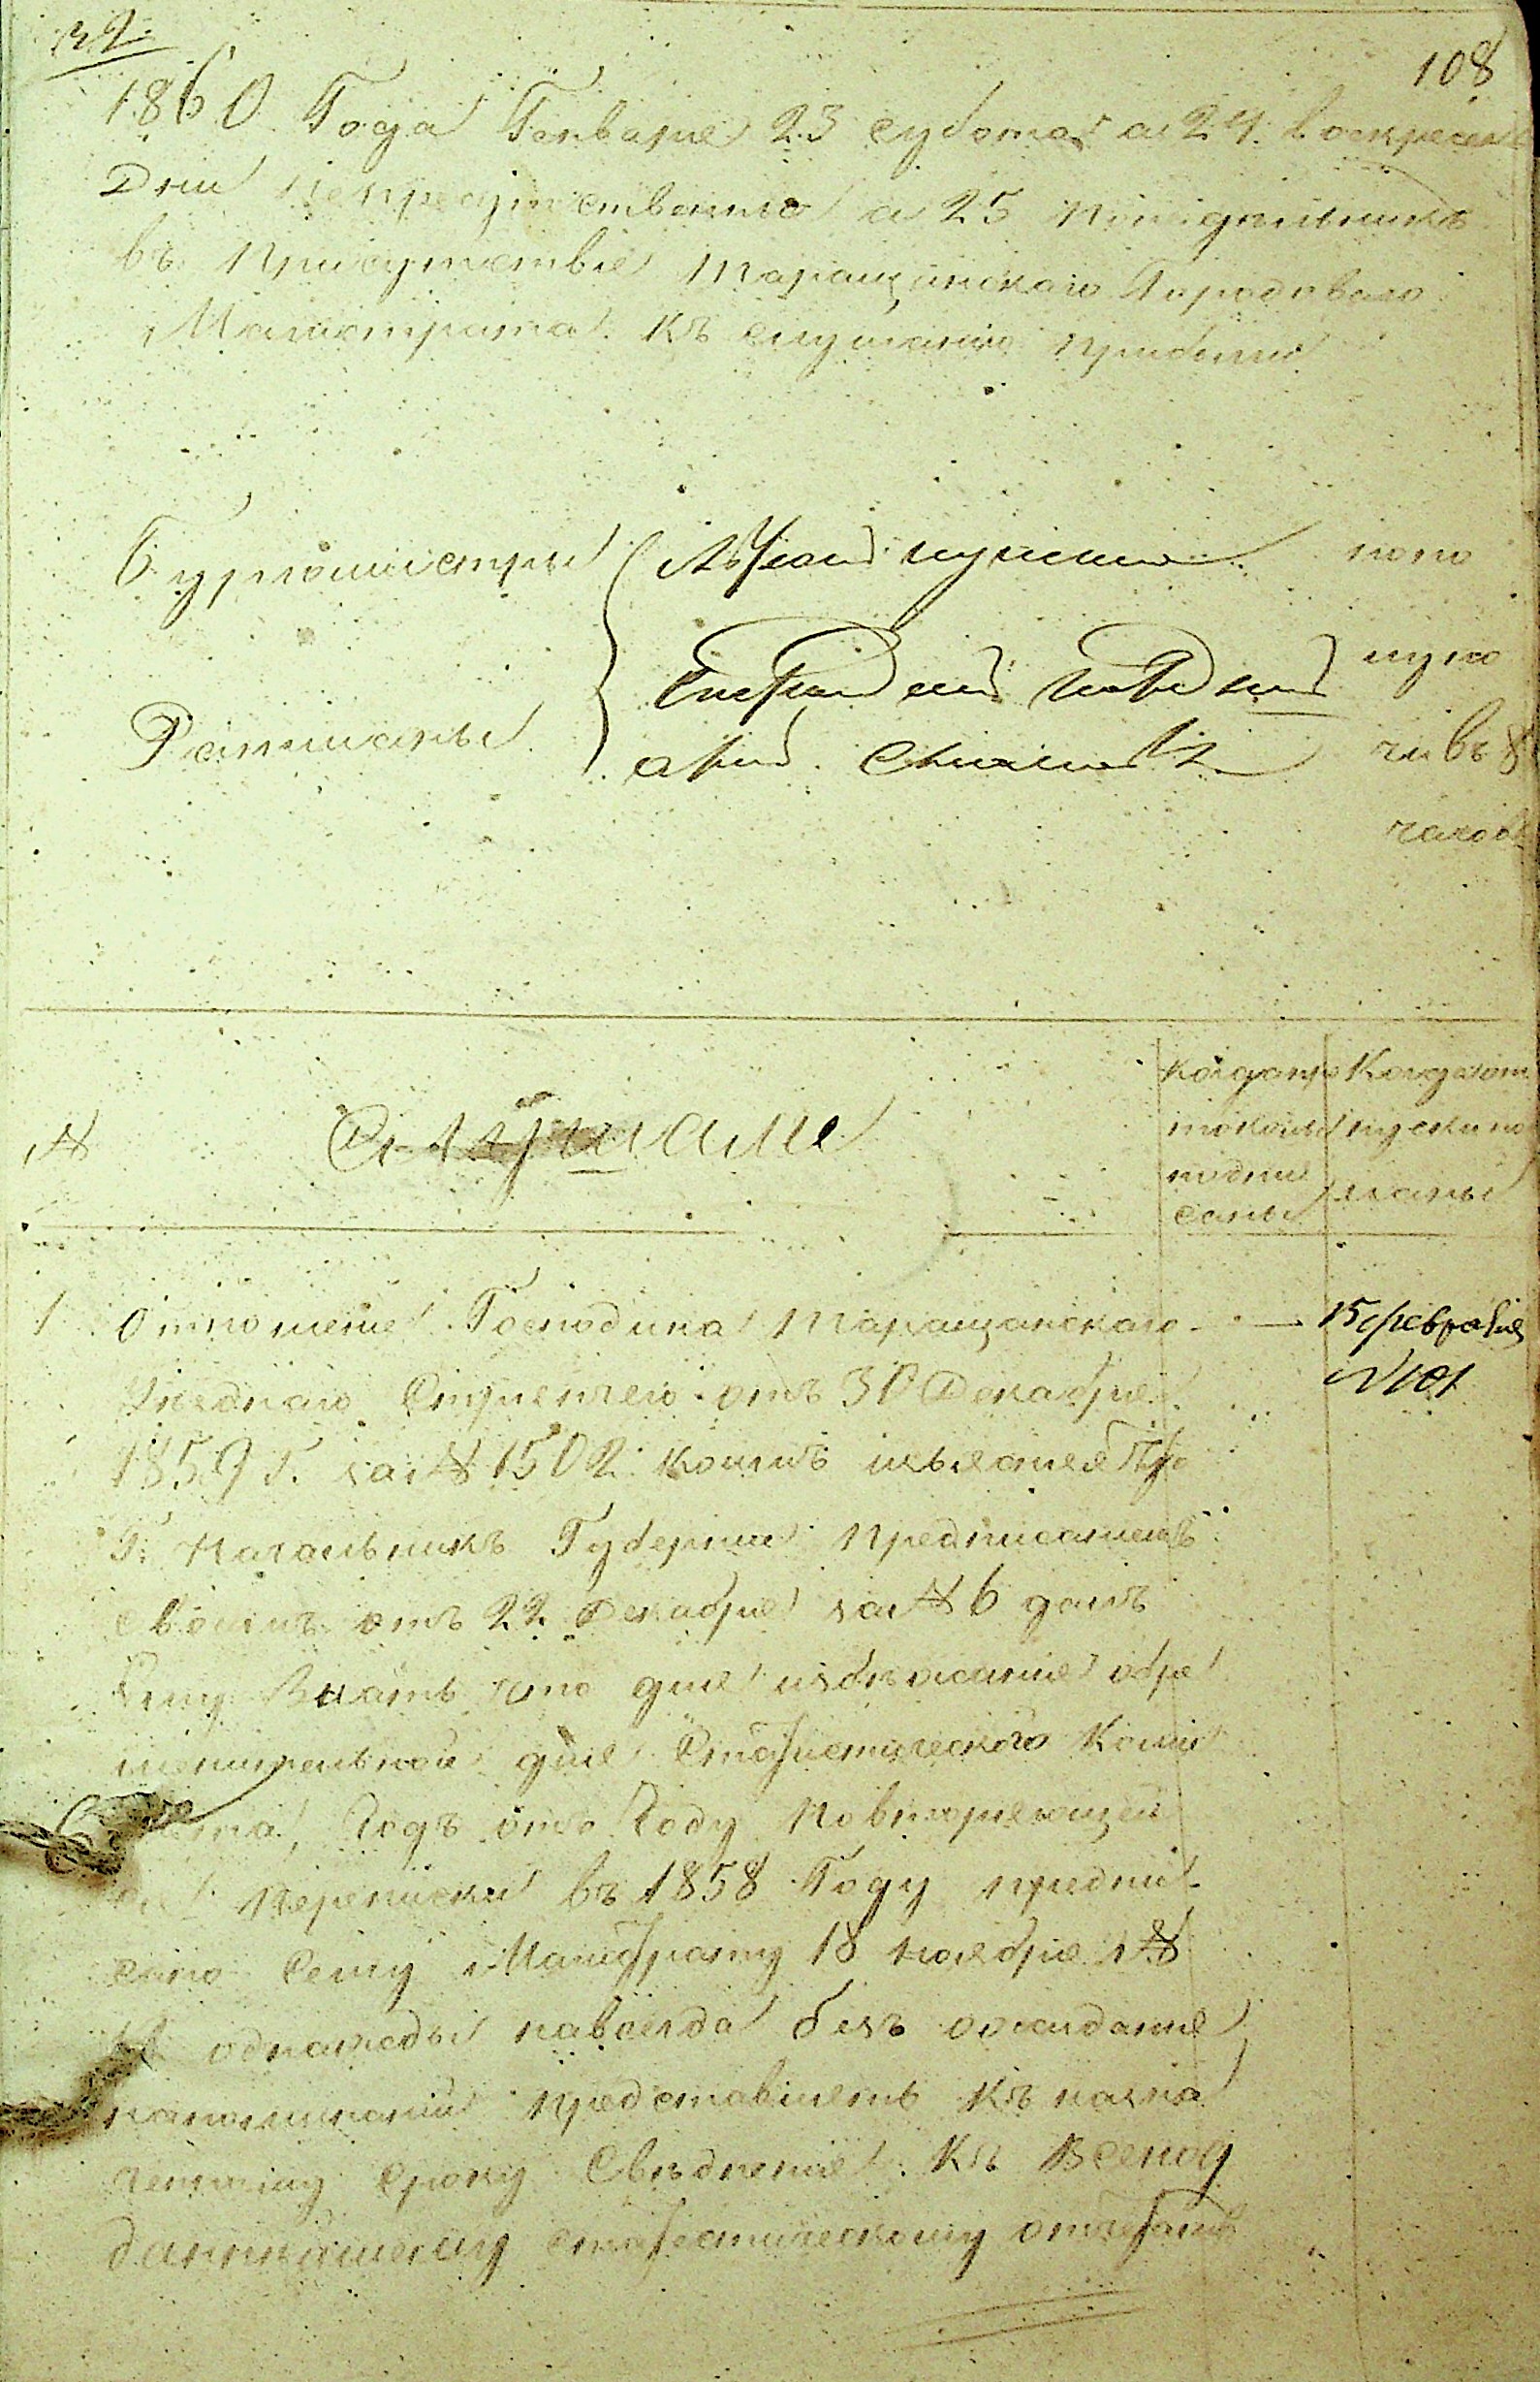 108
1860 Года Генваря 23 субота а 24 воскресен
Дни неприсутственные а 25 понедельникъ
въ Присутствіе Таращанского Городоваго
Магистрата къ слушанію прибыли
Бургомистры
по по
лу но
Ратманы
чи въ 8
часов
№
Слушали
Когда про
токолы
подпи
саны
Когда отп
уски по
сланы
1 Отношеніе Господина Таращанскаго
15 февраля
№ 101
Уезднаго Стряпчего отъ 30 Декабря
1859 г. за № 1502 коимъ изъясняя что
Г. Начальникъ Губерніи предписаніемъ
своимъ отъ 22 Декабря за № 6 далъ
Ему Знать что для избежанія обре
менительной для Статистического Коми
тета, Годъ отъ Году повторяющей
ся переписки въ 1858 Году предпи
сано Сему Магистрату 18 ноября №
однажды навсегда безъ ожиданія
напоминаній представлять къ назна
ченному сроку Сведенія къ Всепод
даннейшему статистическому отчету